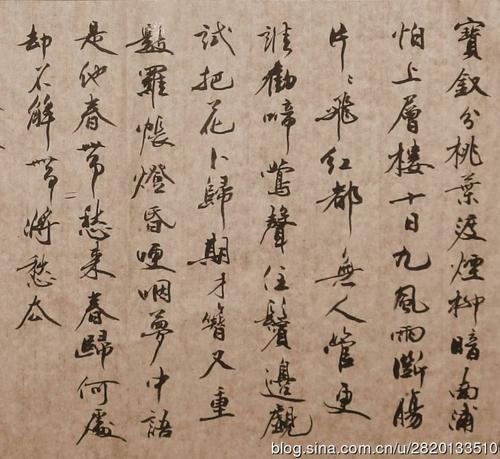 寶釵分桃葉渡煙柳暗南浦
怕上層樓十日九風雨斷腸
片〻飛紅都無人管更
誰勸啼鶯聲住鬢邊覷
試把花卜歸期才簪又重
數羅帳燈昏哽咽夢中語
是他春帶愁來春歸何處
却不解帶將愁去
blog.sina.com.cn/u/2820133510